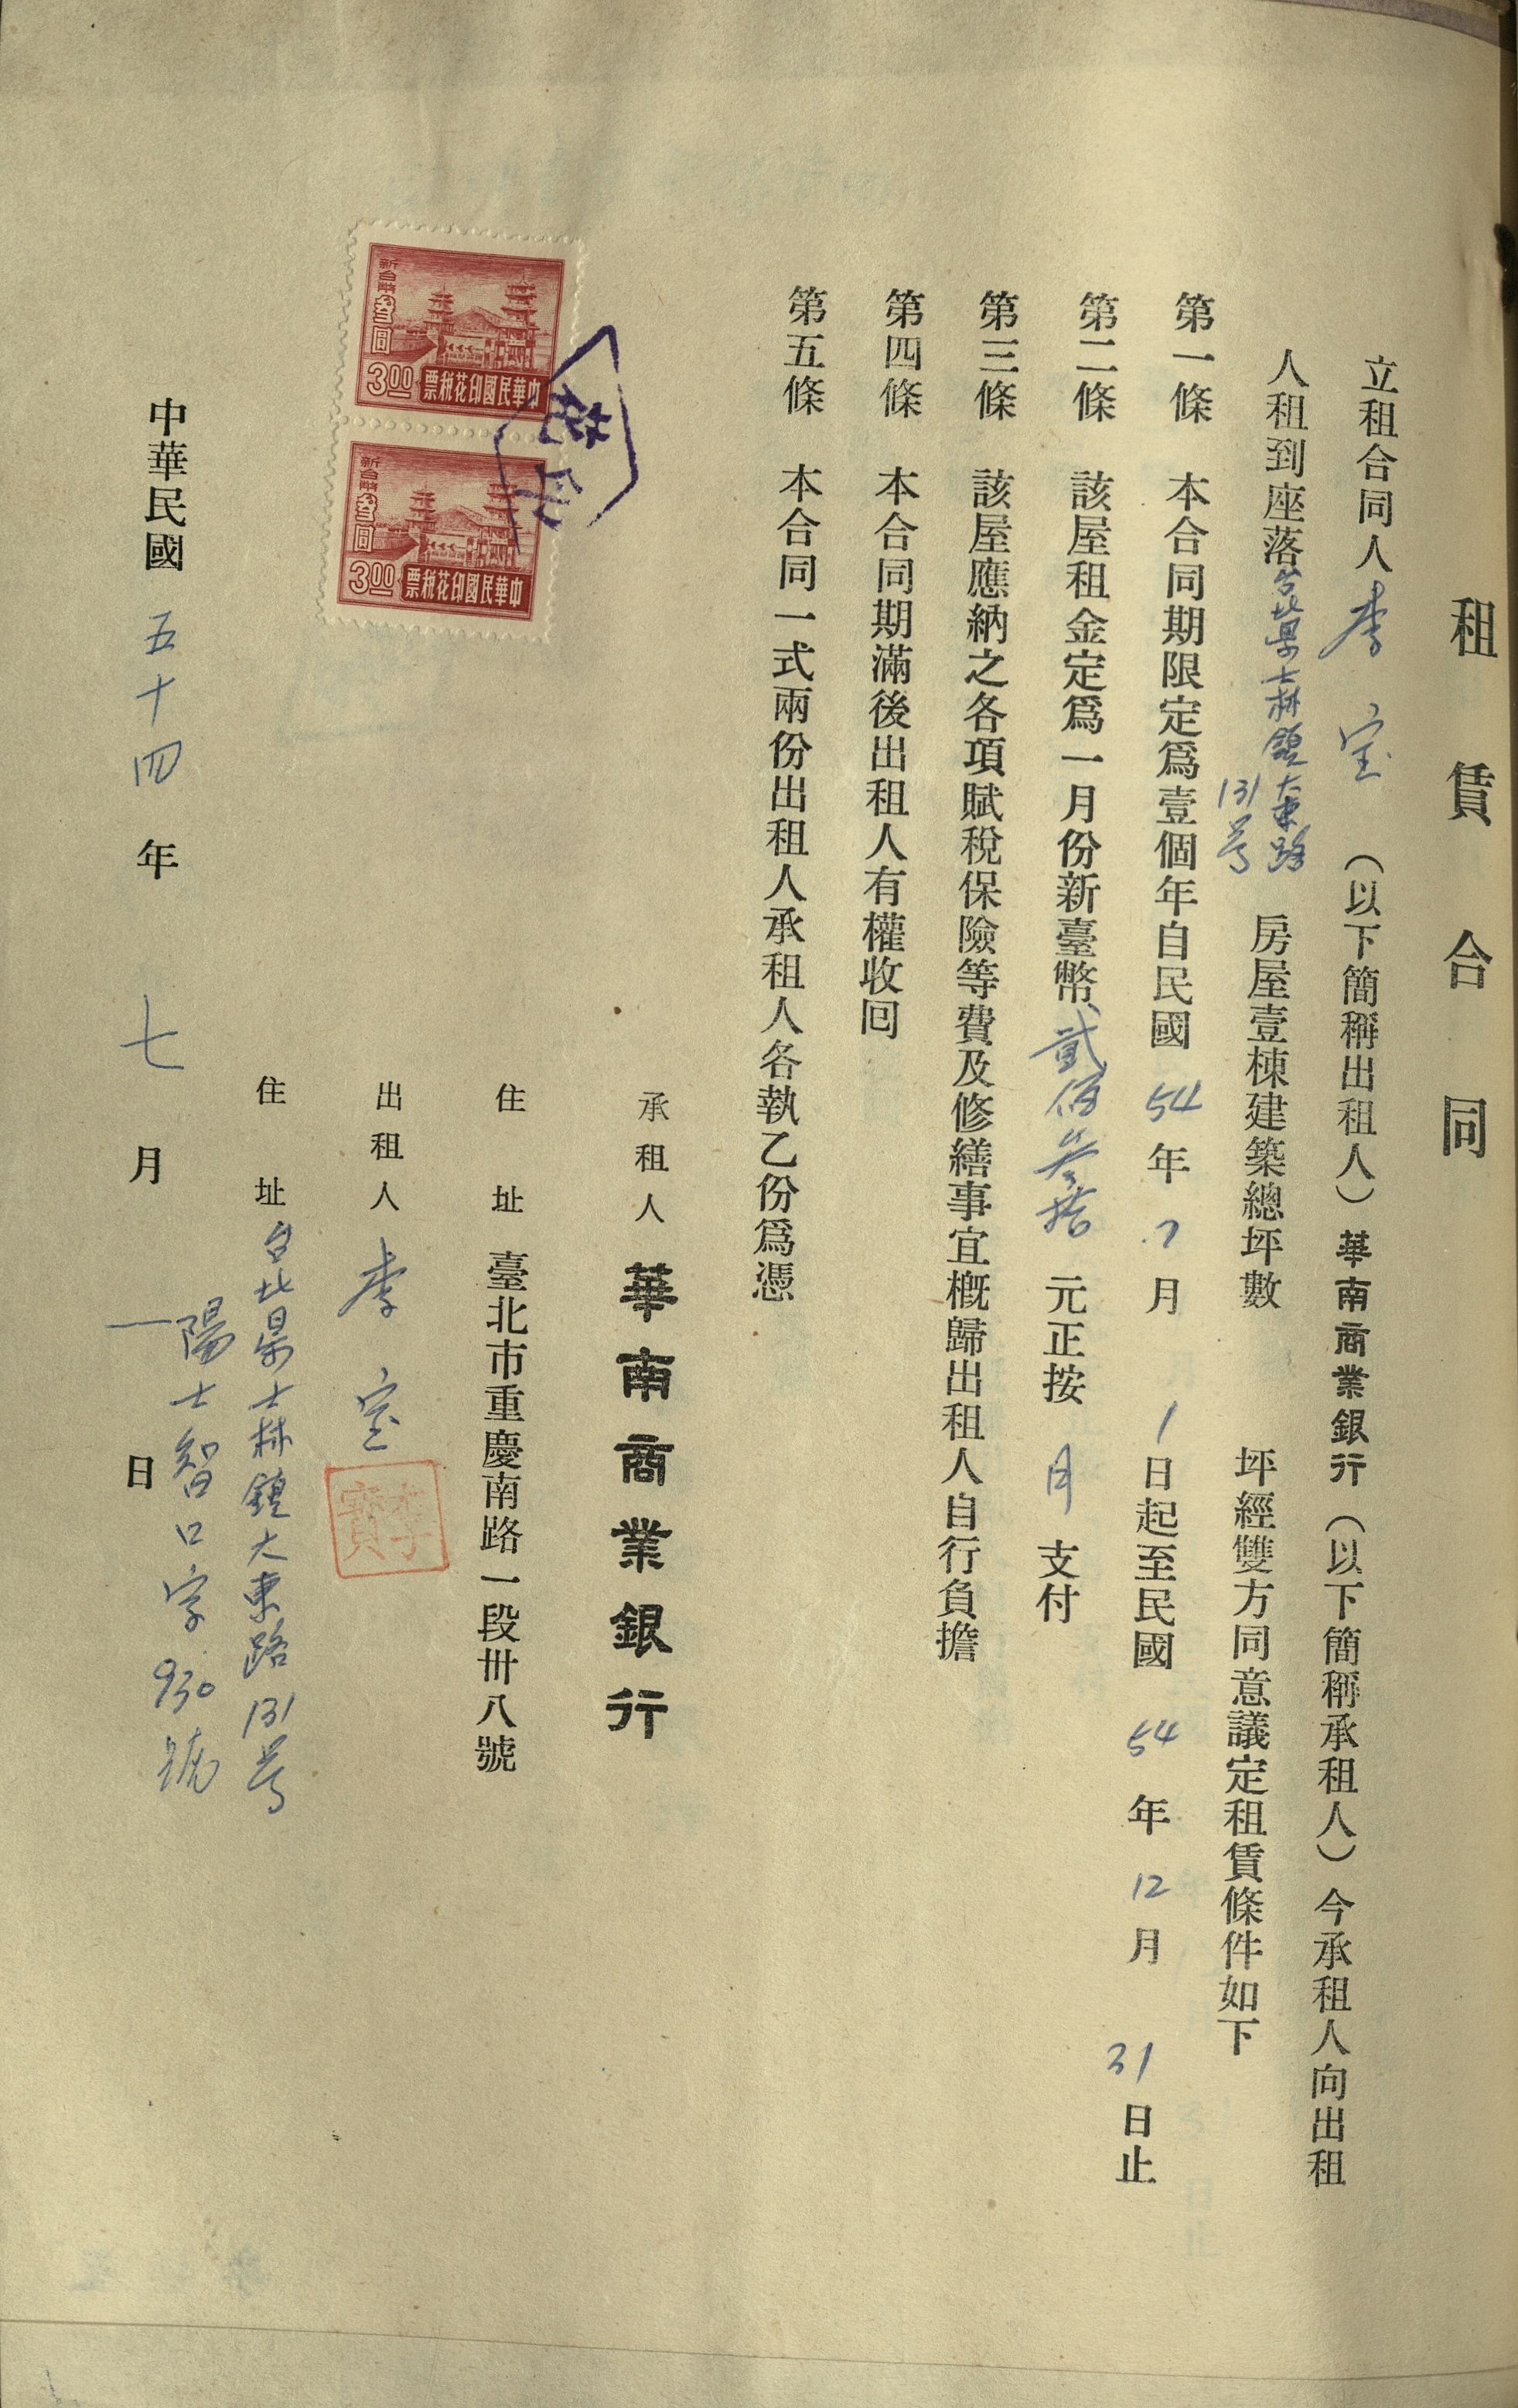 租賃合同
立租合同人李宝（以下簡稱出租人）華南商業銀行（以下簡稱承租人）今承租人向出租
人租到座落台北県士林鎮大東路131号房屋壹棟建築總坪數 坪經雙方同意議定租賃條件如下
第一條 本合同期限定爲壹個年自民國54年7月1日起至民國54年12月31日止
第二條 該屋租金定爲一月份新臺幣貳佰叁拾元正按月支付
第三條 該屋應納之各項賦稅保險等費及修繕事宜概歸出租人自行負擔
第四條 本合同期滿後出租人有權收回
第五條 本合同一式兩份出租人承租人各執乙份爲憑
承租人 華南商業銀行
住址 臺北市重慶南路一段卅八號
出租人 李宝
李寶
住址 台北県士林鎮大東路131号
陽士智口字930號
中華民國五十四年七月一日
新台幣叁圓
3.00
中華民國印花稅票
新台幣叁圓
3.00
中華民國印花稅票